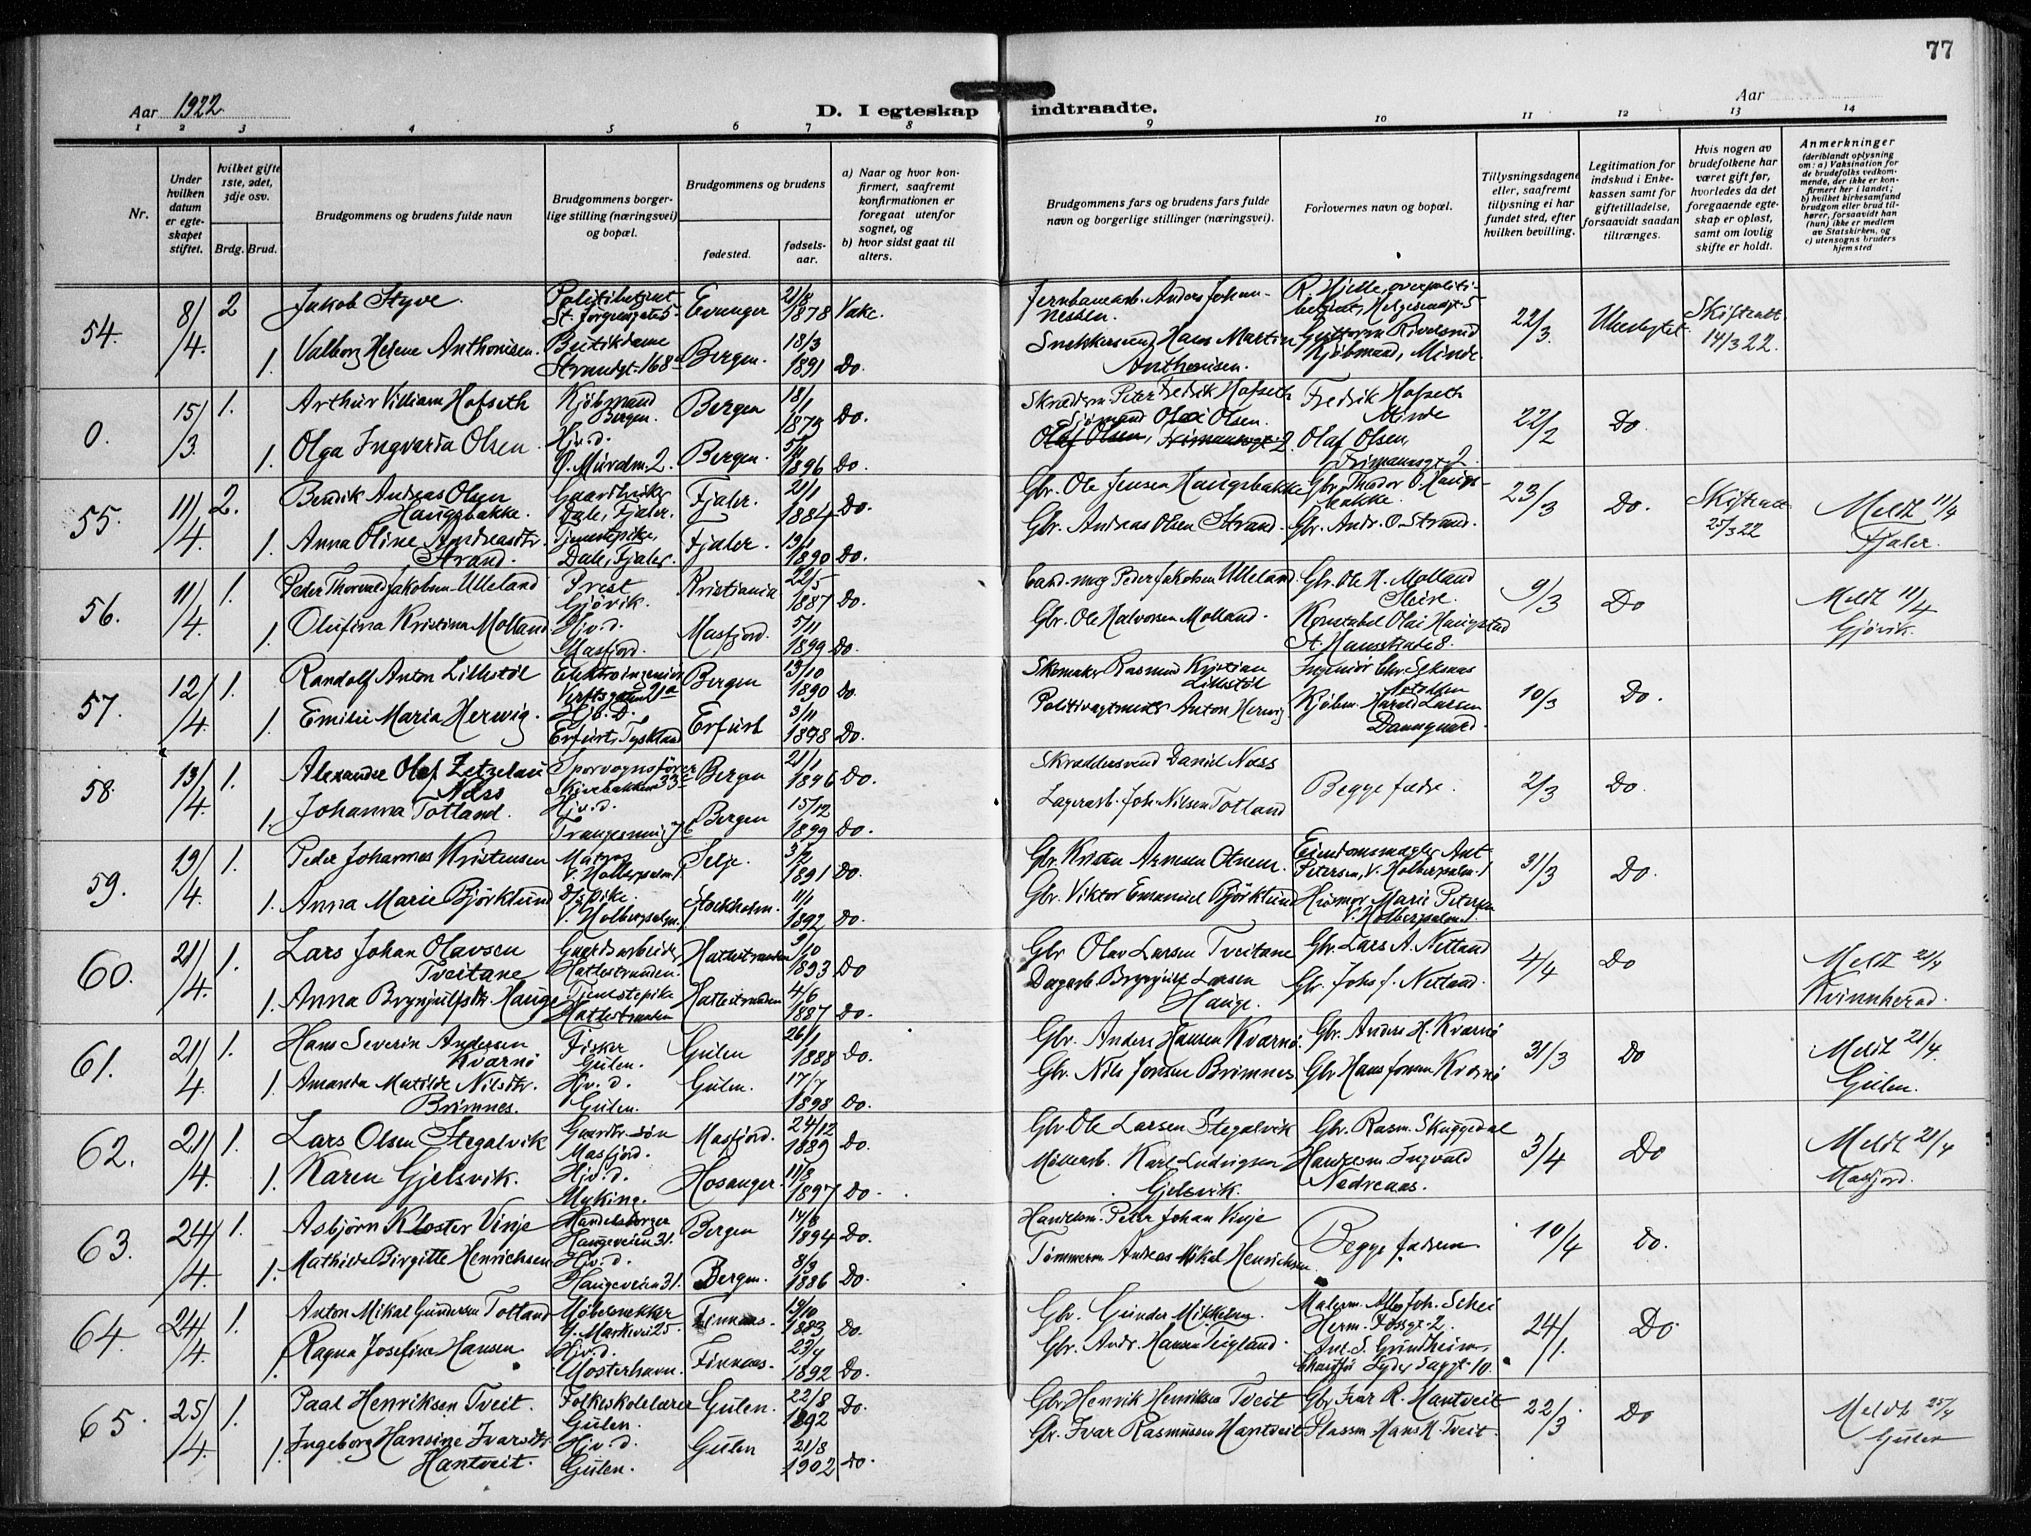 77
Aar 1922
D. I egteskap indtraadte.
Aar
1 2 3 4 5 6 7 8 9 10 11 12 13 14
Nr.
Under hvilken datum er egteskapet stiftet.
hvilket gifte 1ste, 2det, 3dje osv.
Brdg. Brud.
Brudgommens og brudens fulde navn
Brudgommens borgerlige stilling (næringsvei) og bopæl.
Brudgommens og brudens
fødested. fødselsaar.
a) Naar og hvor konfirmert, saafremt konfirmationen er foregaat utenfor sognet, og
b) hvor sidst gaat til alters.
Brudgommens fars og brudens fars fulde navn og borgerlige stillinger (næringsvei).
Forlovernes navn og bopæl.
Tillysningsdagene eller, saafremt tillysning ei har fundet sted, efter hvilken bevilling.
Legitimation for indskud i Enkekassen samt for giftetilladelse, forsaavidt saadan tiltrænges.
Hvis nogen av brudefolkene har været gift før, hvorledes da det foregaaende egteskap er opløst, samt om lovlig skifte er holdt.
Anmerkninger
(deriblandt oplysning om: a) Vaksination for de brudefolks vedkommende, der ikke er konfirmert her i landet; b) hvilket kirkesamfund brudgom eller brud tilhører, forsaavidt han (hun) ikke er medlem av Statskirken, og c) utensogns bruders hjemsted
54. 8/4. 2 Jakob Styve. Politibetjent St. Jørgensgate 5 Evanger 21/8 1878 Vakc. Jernbanearb. Anders Johannessen. R. Hjelle, overpolitibetjent, 22/3 Ubeskyttet Skifteatt. 14/3 22.
1. Valborg Helene Anthonisen. Butikdame Strandgt. 168 Bergen. 18/3 1891 Do. Snekkersvend Hans Martin Anthonisen. Guttorm Kjøbmand, Minde
0. 15/3. 1. Arthur Villiam Hofseth Kjøbmand Bergen. Bergen 18/1 1873 Do. Skrædderm. Peter Fredrik Hofseth Fredrik Hofseth Minde 22/2 Do.
1. Olga Ingvarda Olsen Hjv.d. Ø. Muralm. 2. Bergen. 1896 Do. Sjømand Olai Olsen. Olaf Olsen, Frimannsgt 2
55. 11/4. 2. Bendik Andreas Olsen Haugsbakke. Gaardbruker Dale, Fjaler. Fjaler. 21/1 1884 Do. Gbr. Ole Jensen Haugsbakke Gbr. Theodor O. Haugsbakke. 23/3 Do. Skifteatt 25/3 22 Meldt 11/4 Fjaler.
1. Anna Oline Andreasdtr. Strand. Tjenestepike, Dale, Fjaler. Fjaler. 1890 Do. Gbr. Andreas Olsen Strand. Gbr. Andr. O. Strand.
56. 11/4. 1. Peder Thorvald Jakobsen Ulleland Prest Gjøvik. Kristiania 22/5 1887 Do. Cand. mag Peder Jakobsen Ulleland. Gbr. Ole H. Molland 9/3 Do Meldt 11/4 Gjøvik.
1. Olufina Kristina Molland Hjv.d. Masfjord. Masfjord. 5/11 1899 Do. Gbr. Ole Halvorsen Molland. Konstabel Olai Haugstad St. Hansstræte 8.
57. 12/4. 1. Randolf Anton Lillestøl Elektroingeniør Verftsgaten 21a Bergen 13/10 1890 Do. Skomaker Rasmus Kristian Lillestøl Ingeniør Chr. 10/3 Do.
1. Emilie Maria Herwig. Hjv.D. Erfurt, Tyskland Erfurt 3/11 1898 Do. Anton Herwig Kjøbm. Harald Larsen Damsgaard.
58. 13/4. 1. Alexander Olaf Zetzelau Næss Sporvognsfører Skivebakken 33 Bergen 21/1 1896 Do. Skræddersvend Daniel Næss Begge fædre. 2/3 Do.
1. Johanna Totland. Hjv.d. Bergen 15/12 1899 Do. Lagerarb. Joh. Nilsen Totland
59. 19/4. 1. Peder Johannes Kristensen Matros V. Holbergsalm. 1 Selje. 3/2 1891 Do. Gbr. Kristen Arnesen Otnem. Eiendomsmægler Ant. Petersen, V. Holbergsalm. 1 31/3 Do.
1. Anna Marie Björklund V. Holbergsalm. 1 Stockholm. 11/1 1892 Do. Gbr. Viktor Emanuel Björklund Husmor Marie Petersen V. Holbergsalm. 1.
60. 21/4. 1. Lars Johan Olavsen Tveitane Gaardsarbeider Hattestranden. Hattestranden 9/10 1893 Do Gbr. Olav Larsen Tveitane Gbr. Lars A. Netland 4/4 Do Meldt 21/4 Kvinnherad.
1. Anna Brynjulfsdtr. Hauge Tjenestepike Hattestranden Hattestranden 4/6 1887 Do. Dagarb. Brynjulf Larsen Hauge. Gbr. Johs J. Netland.
61. 21/4 1. Hans Severin Andersen Kvarnø Fisker Gulen. Gulen 26/1 1888 Do. Gbr. Anders Hansen Kvarnø. Gbr. Anders H. Kvarnø 31/3 Do Meldt 21/4. Gulen.
1. Amanda Matilde Nilsdtr. Brimnes. Hjv.d. Gulen. Gulen. 17/7 1898 Do. Gbr. Nils Jonsen Brimnes Gbr. Hans Jonsen Kvarnø
62. 21/4 1. Lars Olsen Stegalvik Gaardbr. søn Masfjord. Masfjord. 24/12 1889 Do. Gbr. Ole Larsen Stegalvik Gbr. Rasm. Skuggedal 3/4 Do Meldt 21/4 Masfjord.
1. Karen Gjelsvik. Hjv.d. Myking. Hosanger. 11/8 1897 Do. Møllearb. Karl Ludvigsen Gjelsvik. Handelsm. Ingvald Nedreaas.
63. 24/4. 1. Asbjørn Kloster Vinje Handelsborger Haugeveien 31. Bergen 14/8 1894 Do. Handelsm. Peter Johan Vinje Begge fædrene 10/4 Do.
1. Mathilde Birgitte Henrichsen Hjv.d. Haugeveien 31. Bergen. 8/9 1886 Do. Tømmerm Andreas Mikal Henrichsen.
64. 24/4. 1. Anton Mikal Gundersen Totland Møbelsnekker Y. Markevei 25. Finnaas. 13/10 1883 Do. Gbr. Gunder Mikkelsen Malerm. Joh. Schei Herm. Fossgt. 2. 24/1. Do
1. Ragna Josefine Hansen Hjv.d. Mosterhavn. Finnaas. 23/4 1892 Do. Gbr. Andr. Hansen Eigland. Ant. S. Grindheim, Lyder Saggt. 10.
65. 25/4. 1. Paal Henriksen Tveit. Folkeskolelærer Gulen. Gulen. 22/8 1892 Do. Gbr. Henrik Henriksen Tveit Gbr. Ivar R. Hantveit 22/3 Do Meldt 25/4 Gulen
1. Ingeborg Hansine Ivarsdtr. Hantveit. Hjv.d. Gulen. Gulen 21/8 1902 Do. Gbr. Ivar Rasmussen Hantveit Plassm. Hans H. Tveit.